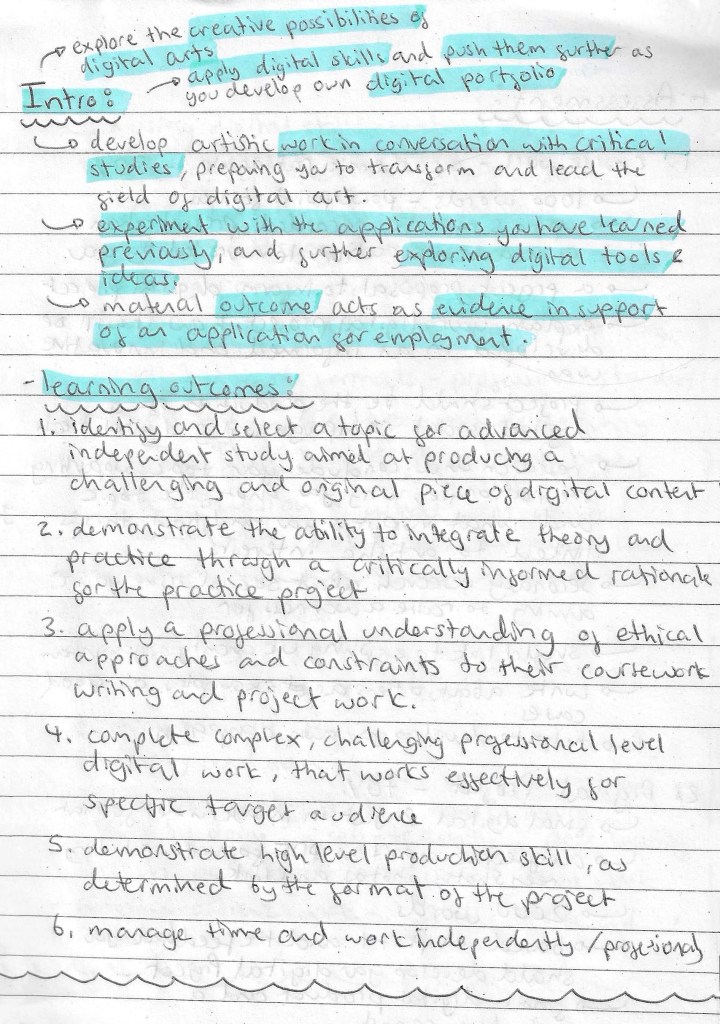 → explore the creative possibilities of
digital arts
→ apply digital skills and push them further as
you develop own digital portfolio
Intro:
→ develop artistic work in conversation with critical
studies, preparing you to transform and lead the
field of digital art.
→ experiment with the applications you have learned
previously, and further exploring digital tools &
ideas.
→ material outcome acts as evidence in support
of an application for employment.
- learning outcomes:
1. identify and select a topic for advanced
independent study aimed at producing a
challenging and original piece of digital content
2. demonstrate the ability to integrate theory and
practice through a critically informed rationale
for the practice project
3. apply a professional understanding of ethical
approaches and constraints to their coursework
writing and project work.
4. complete complex, challenging professional level
digital work, that works effectively for
specific target audience
5. demonstrate high level production skill, as
determined by the format of the project
6. manage time and work independently / professionally